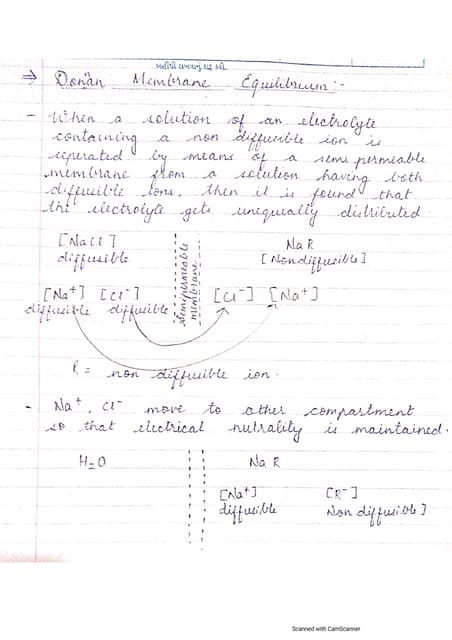 અહીંથી લખવાનું શરૂ કરો.
⇒ Donan Membrane Equilibrium :-
- When a solution of an electrolyte
containing a non diffusible ion is
seperated by means of a semi permeable
membrane from a solution having both
diffusible ions, then it is found that
the electrolyte gets unequally distributed.
[NaCl] NaR
diffusible [Nondiffusible]
Semipermeable
membrane
[Na⁺] [Cl⁻] [Cl⁻] [Na⁺]
diffusible diffusible
R = non diffusible ion.
- Na⁺, Cl⁻ move to other compartment
so that electrical nutrality is maintained.
H₂O NaR
[Na⁺] [R⁻]
diffusible Non diffusible]
Scanned with CamScanner